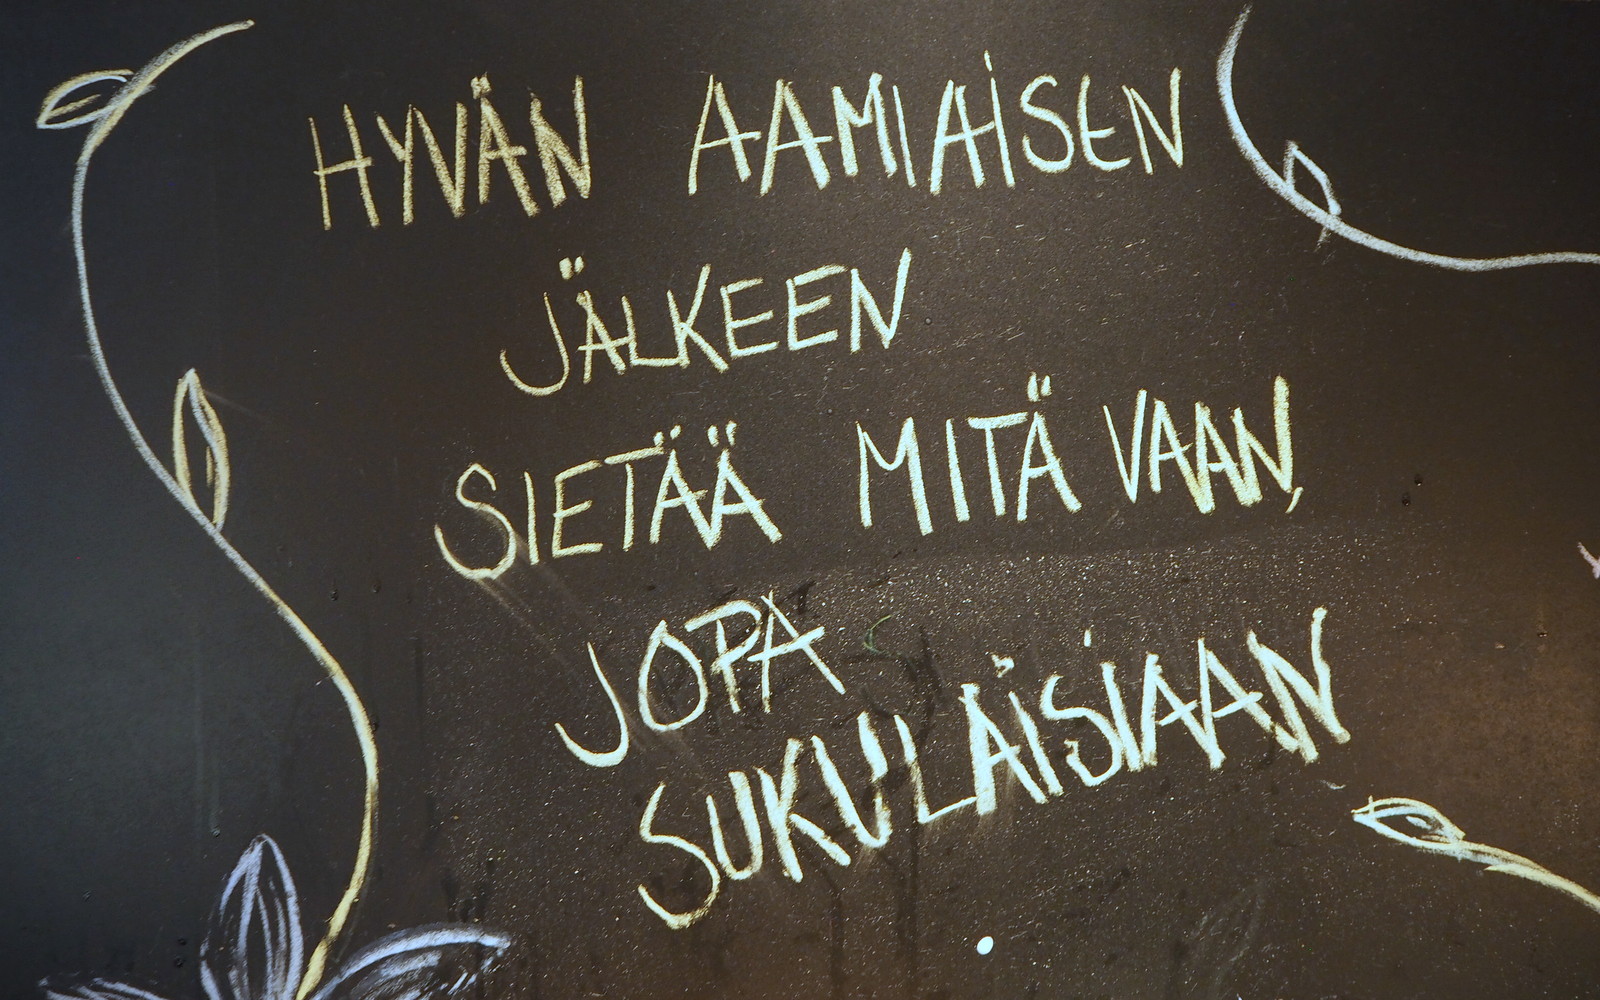 HYVÄN AAMIAISEN
JÄLKEEN
SIETÄÄ MITÄ VAAN,
JOPA
SUKULAISIAAN